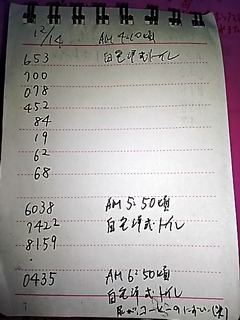 12/14 AM 4:10頃
653 自宅洋式トイレ
700
078
452
84
19
62
68
6038 AM 5:50頃
7422 自宅洋式トイレ
8159
・
0435 AM 6:50頃
自宅洋式トイレ
尿がコーヒーのにおい(笑)